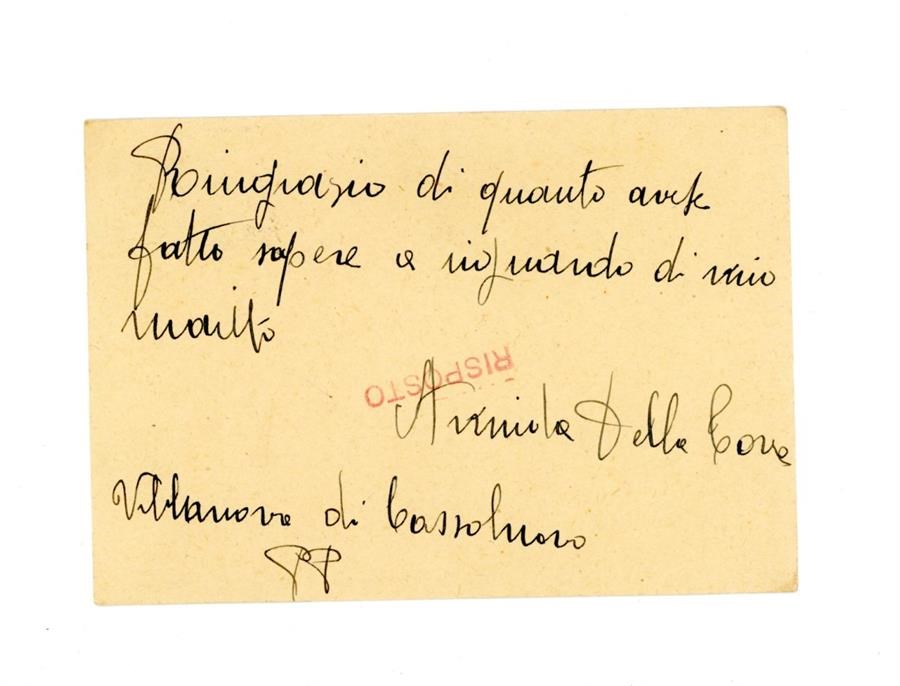 Ringrazio di quanto avete
fatto sapere a riguardo di mio
marito
RISPOSTO
Armida Della
Villanova di Cassolnovo